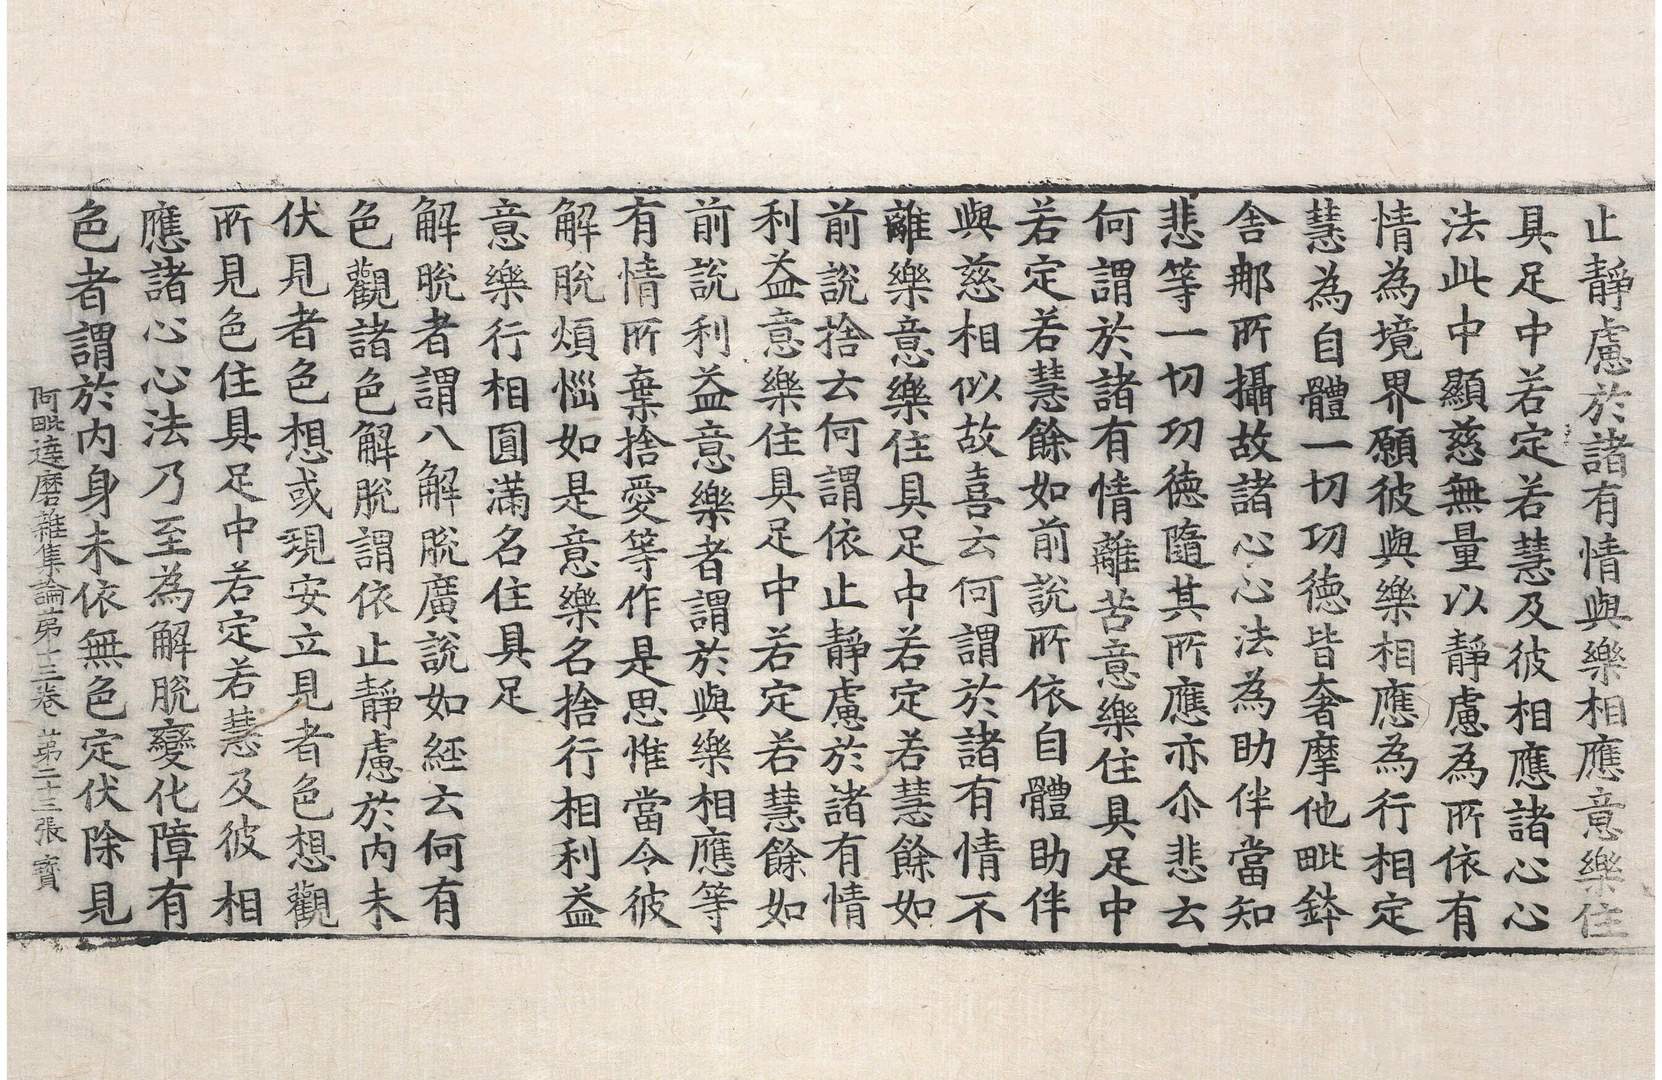 止靜慮於諸有情與樂相應意樂住
具足中若定若慧及彼相應諸心心
法此中顯慈無量以靜慮為所依有
情為境界願彼與樂相應為行相定
慧為自體一切功德皆奢摩他毗鉢
舍那所攝故諸心心法為助伴當知
悲等一切功德隨其所應亦尒悲云
何謂於諸有情離苦意樂住具足中
若定若慧餘如前說所依自體助伴
與慈相似故喜云何謂於諸有情不
離樂意樂住具足中若定若慧餘如
前說捨云何謂依止靜慮於諸有情
利益意樂住具足中若定若慧餘如
前說利益意樂者謂於與樂相應等
有情所棄捨愛等作是思惟當令彼
解脫煩惱如是意樂名捨行相利益
意樂行相圓滿名住具足
解脫者謂八解脫廣說如經云何有
色觀諸色解脫謂依止靜慮於內未
伏見者色想或現安立見者色想觀
所見色住具足中若定若慧及彼相
應諸心心法乃至為解脫變化障有
色者謂於內身未依無色定伏除見
阿毗達磨雜集論第十三卷 第二十三張 寶